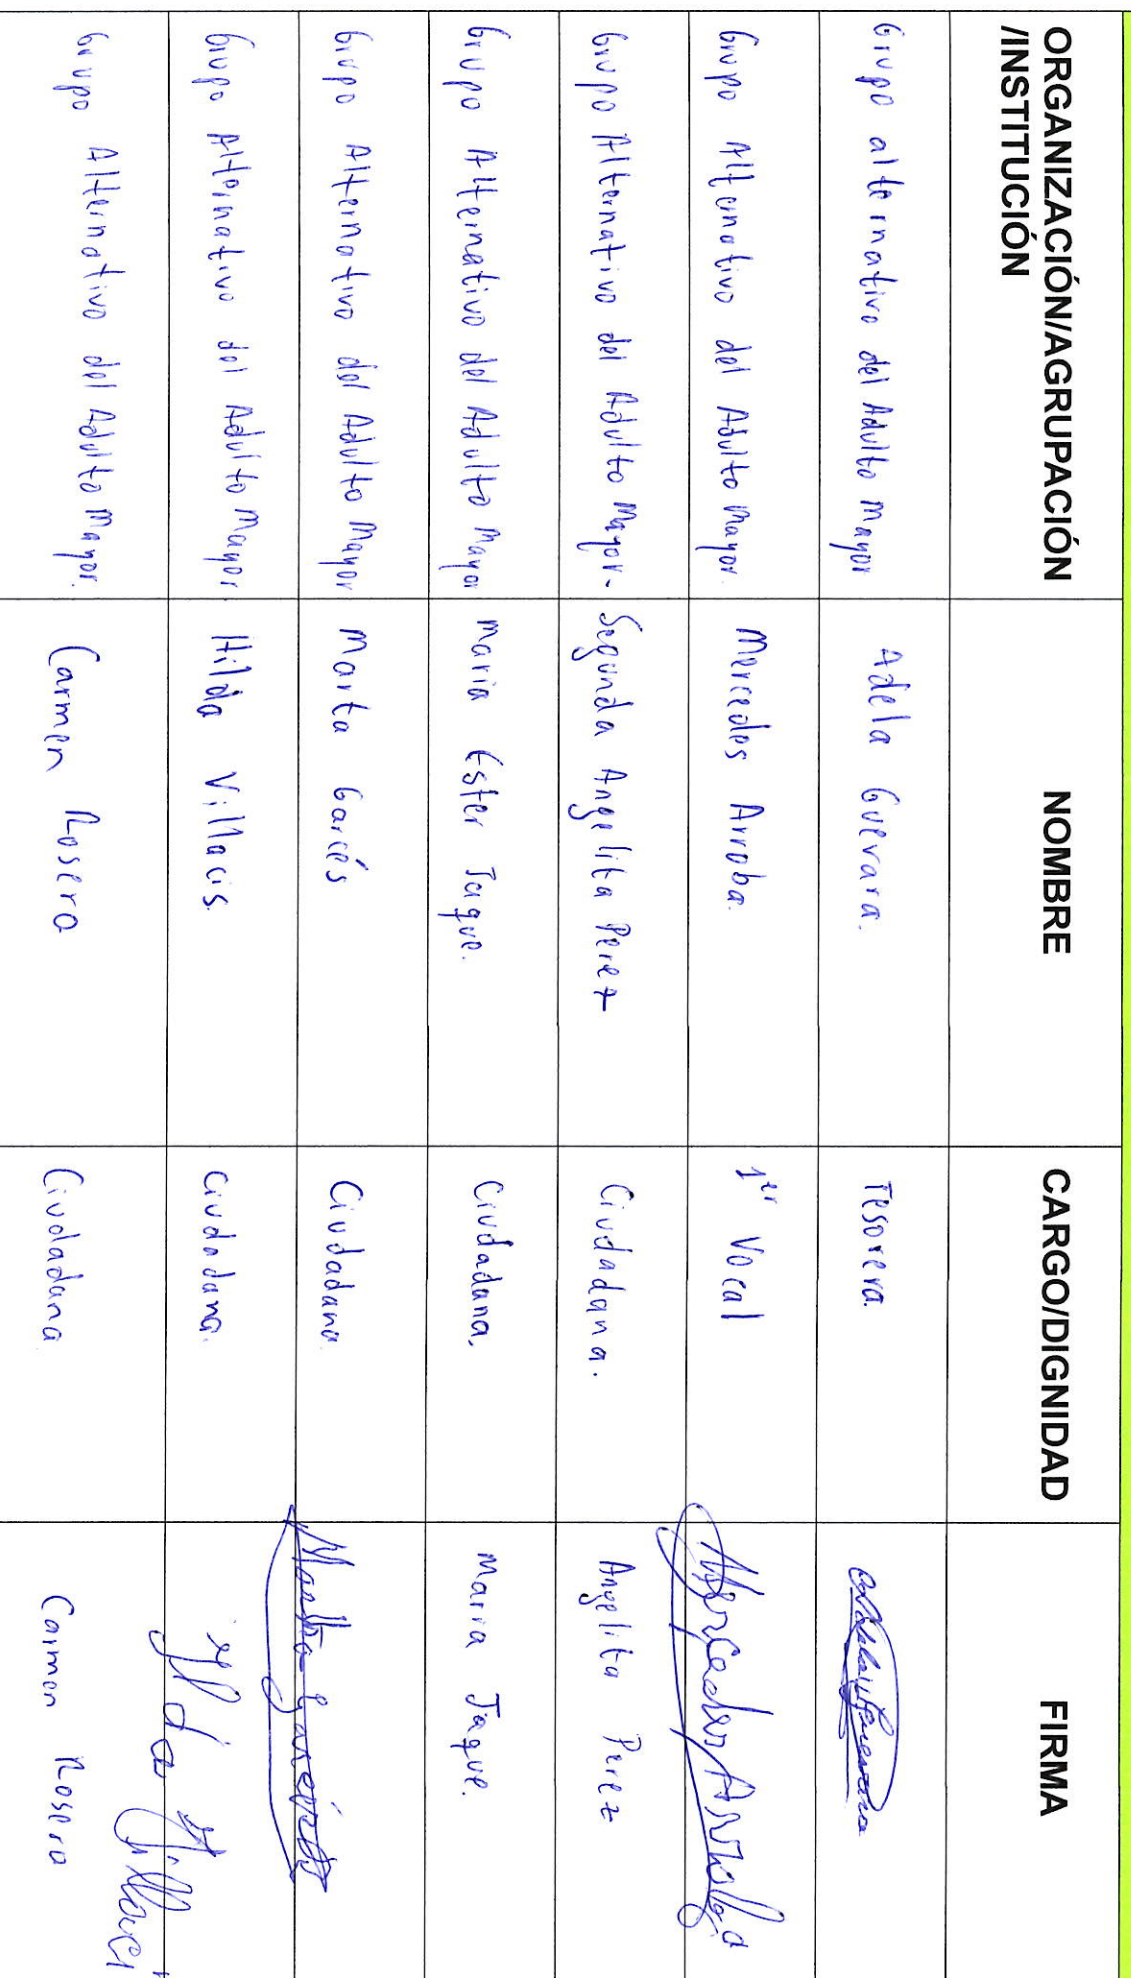 ORGANIZACIÓN/AGRUPACIÓN
/INSTITUCIÓN
NOMBRE
CARGO/DIGNIDAD
FIRMA
Grupo alternativo del Adulto Mayor
Adela Guevara.
Tesorera.
Grupo Alternativo del Adulto Mayor.
Mercedes Arroba.
1er Vocal
Mercedes Arroba
Grupo Alternativo del Adulto Mayor.
Segunda Angelita Perez
Ciudadana.
Angelita Perez
Grupo Alternativo del Adulto Mayor
Maria Ester Jaque.
Ciudadana.
Maria Jaque.
Grupo Alternativo del Adulto Mayor
Marta Garcés
Ciudadana
Grupo Alternativo del Adulto Mayor
Hilda Villacis.
Ciudadana.
Grupo Alternativo del Adulto Mayor.
Carmen Rosero
Ciudadana
Carmen Rosero